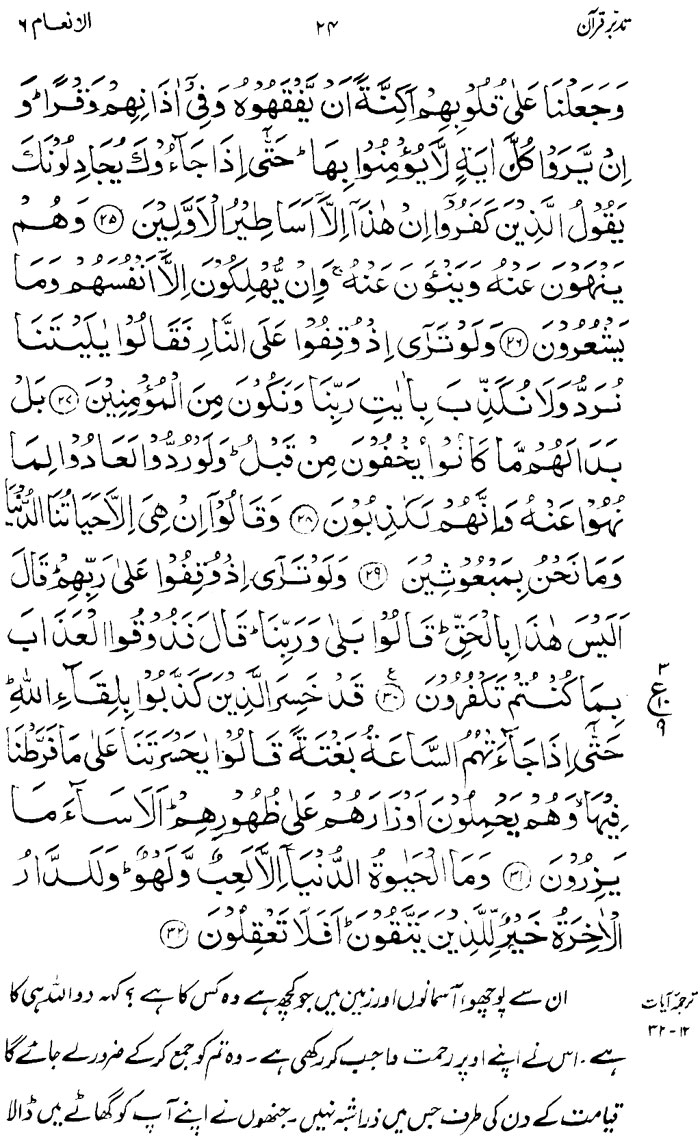 تدبر قرآن ۲۴ الانعام ۶
وَجَعَلْنَا عَلٰى قُلُوْبِهِمْ اَكِنَّةً اَنْ يَّفْقَهُوْهُ وَفِيْٓ اٰذَانِهِمْ وَقْرًا ؕ وَ
اِنْ يَّرَوْا كُلَّ اٰيَةٍ لَّا يُؤْمِنُوْا بِهَا ؕ حَتّٰۤى اِذَا جَآءُوْكَ يُجَادِلُوْنَكَ
يَقُوْلُ الَّذِيْنَ كَفَرُوْٓا اِنْ هٰذَاۤ اِلَّاۤ اَسَاطِيْرُ الْاَوَّلِيْنَ ۝۲۵ وَهُمْ
يَنْهَوْنَ عَنْهُ وَيَنْـَٔوْنَ عَنْهُ ۚ وَاِنْ يُّهْلِكُوْنَ اِلَّاۤ اَنْفُسَهُمْ وَمَا
يَشْعُرُوْنَ ۝۲۶ وَلَوْ تَرٰٓى اِذْ وُقِفُوْا عَلَى النَّارِ فَقَالُوْا يٰلَيْتَنَا
نُرَدُّ وَلَا نُكَذِّبَ بِاٰيٰتِ رَبِّنَا وَنَكُوْنَ مِنَ الْمُؤْمِنِيْنَ ۝۲۷ بَلْ
بَدَا لَهُمْ مَّا كَانُوْا يُخْفُوْنَ مِنْ قَبْلُ ؕ وَلَوْ رُدُّوْا لَعَادُوْا لِمَا
نُهُوْا عَنْهُ وَاِنَّهُمْ لَكٰذِبُوْنَ ۝۲۸ وَقَالُوْٓا اِنْ هِيَ اِلَّا حَيَاتُنَا الدُّنْيَا
وَمَا نَحْنُ بِمَبْعُوْثِيْنَ ۝۲۹ وَلَوْ تَرٰٓى اِذْ وُقِفُوْا عَلٰى رَبِّهِمْ ؕ قَالَ
اَلَيْسَ هٰذَا بِالْحَقِّ ؕ قَالُوْا بَلٰى وَرَبِّنَا ؕ قَالَ فَذُوْقُوا الْعَذَابَ
بِمَا كُنْتُمْ تَكْفُرُوْنَ ۝۳۰ ع قَدْ خَسِرَ الَّذِيْنَ كَذَّبُوْا بِلِقَآءِ اللّٰهِ ؕ
۳ ع ۱۰ ۹
حَتّٰۤى اِذَا جَآءَتْهُمُ السَّاعَةُ بَغْتَةً قَالُوْا يٰحَسْرَتَنَا عَلٰى مَا فَرَّطْنَا
فِيْهَا ۙ وَهُمْ يَحْمِلُوْنَ اَوْزَارَهُمْ عَلٰى ظُهُوْرِهِمْ ؕ اَلَا سَآءَ مَا
يَزِرُوْنَ ۝۳۱ وَمَا الْحَيٰوةُ الدُّنْيَاۤ اِلَّا لَعِبٌ وَّلَهْوٌ ؕ وَلَلدَّارُ
الْاٰخِرَةُ خَيْرٌ لِّلَّذِيْنَ يَتَّقُوْنَ ؕ اَفَلَا تَعْقِلُوْنَ ۝۳۲
ترجمۂ آیات
۱۲-۳۲
ان سے پوچھو، آسمانوں اور زمین میں جو کچھ ہے وہ کس کا ہے ؟ کہہ دو اللہ ہی کا
ہے ۔ اس نے اپنے اوپر رحمت واجب کر رکھی ہے ۔ وہ تم کو جمع کر کے ضرور لے جائے گا
قیامت کے دن کی طرف جس میں ذرا شبہ نہیں ۔ جنھوں نے اپنے آپ کو گھاٹے میں ڈالا